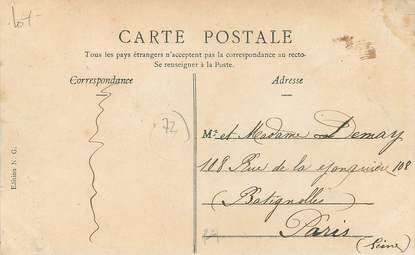 lot
CARTE POSTALE
Tous les pays étrangers n'acceptent pas la correspondance au recto-
Se renseigner à la Poste.
Correspondance
Adresse
72
Mr et Madame Demay
108 Rue de la Jonquière 108
(Batignolles)
Paris
(Seine)
Edition N. G.